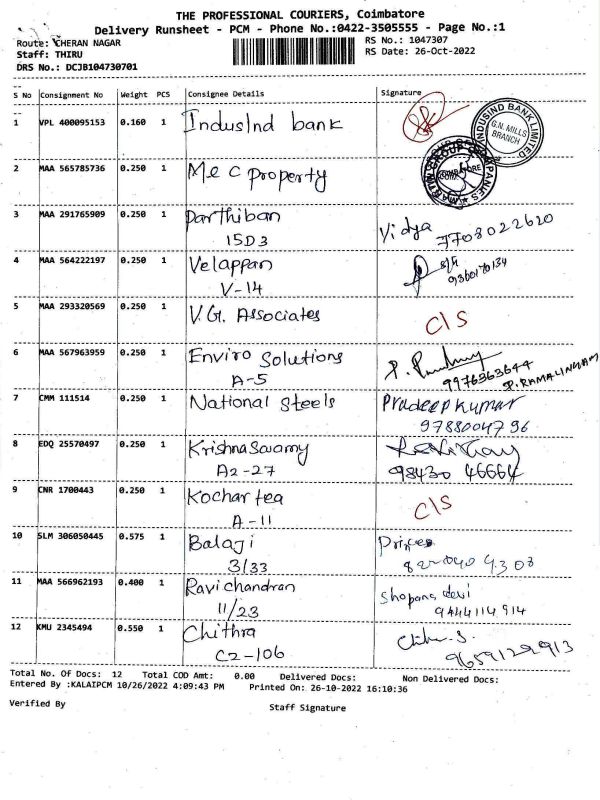 THE PROFESSIONAL COURIERS, Coimbatore
Delivery Runsheet - PCM - Phone No.:0422-3505555 - Page No.:1
Route: CHERAN NAGAR
RS No.: 1047307
Staff: THIRU
RS Date: 26-Oct-2022
DRS No.: DCJB104730701
S No Consignment No Weight PCS Consignee Details Signature
1 VPL 400095153 0.160 1 IndusInd bank
INDUSIND BANK LIMITED
G.N. MILLS
BRANCH
2 MAA 565785736 0.250 1 M e C Property
3 MAA 291765909 0.250 1 Parthiban Vidya
15D3 7708022620
4 MAA 564222197 0.250 1 Velappan
V-14 9360170134
5 MAA 293320569 0.250 1 V.G. Associates C/S
6 MAA 567963959 0.250 1 Enviro Solutions
A-5 9976363644
P. RAMALINGAM
7 CMM 111514 0.250 1 National Steels Pradeep Kumar
9788004796
8 EDQ 25570497 0.250 1 Krishnaswamy
A2-27 98430 46664
9 CNR 1700443 0.250 1 Kochar tea C/S
A-11
10 SLM 306050445 0.575 1 Balaji
3/33
11 MAA 566962193 0.400 1 Ravichandran Shopana devi
11/23 9444114914
12 KMU 2345494 0.550 1 Chithra
C2-106 9659129913
Total No. Of Docs: 12 Total COD Amt: 0.00 Delivered Docs: Non Delivered Docs:
Entered By :KALAIPCM 10/26/2022 4:09:43 PM Printed On: 26-10-2022 16:10:36
Verified By
Staff Signature